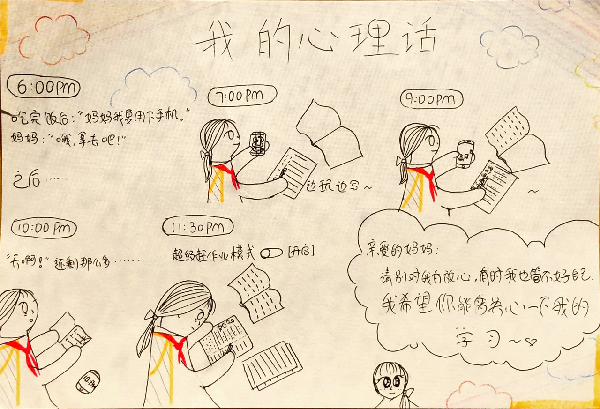 我的心理话
6:00pm
吃完饭后:"妈妈我要用下手机。"
妈妈:"哦,拿去吧!"
之后……
7:00pm
边玩边写~
9:00pm
~
10:00pm
"天啊!"还剩那么多……
11:30pm
超级赶作业模式 [开启]
亲爱的妈妈:
请别对我太放心,有时我也管不好自己.
我希望你能关心一下我的
学习~